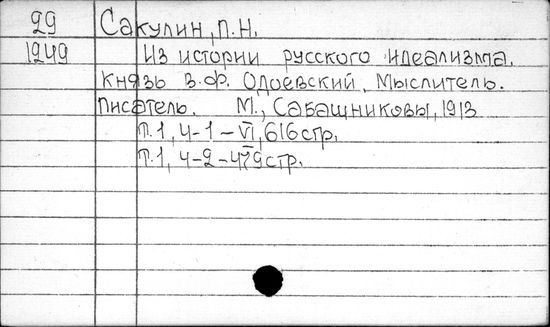 29 Сакулин, П.Н.
1249 Из истории русского идеализма.
Князь В.Ф. Одоевский. Мыслитель.
Писатель. М., Сабашниковы, 1913
Т.1, ч-1-VI, 616стр.
Т.1, ч-2-479стр.